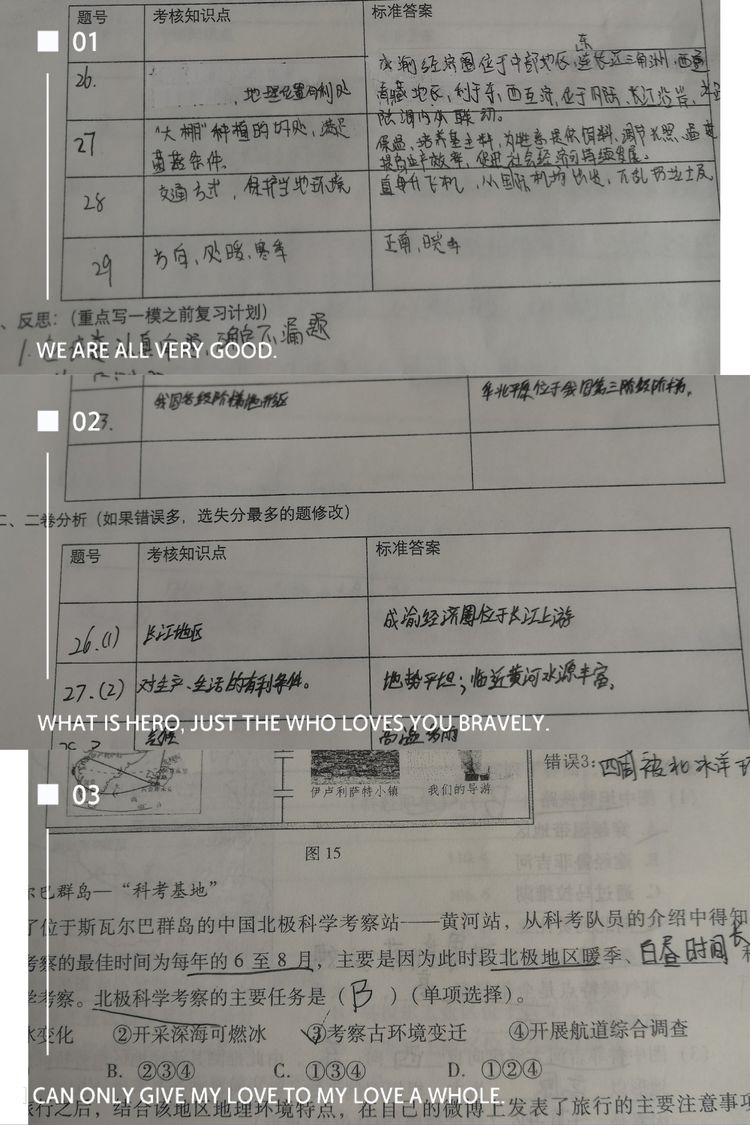 题号 考核知识点 标准答案
01
26. 成渝经济圈位于中部地区,连长江三角洲,西通
东
,地理位置的利处 青藏地区,利于东、西互济,位于内陆、长江沿岸,
陆海内外联动。
27 "大棚"种植的好处,满足 保温、培养基主料,为牲畜提供饲料、调节光照、温度
蘑菇条件。 提高生产效率,促进社会经济可持续发展。
28 交通方式,保护当地环境 直升飞机,从国际机场出发,不乱扔垃圾
29 方向、处暖、寒季 正南、晓寒
、反思:(重点写一模之前复习计划)
1. 认真 ,确定不漏题
WE ARE ALL VERY GOOD.
02
3. 我国各级阶梯地形区 华北平原位于我国第三阶级阶梯。
二、二卷分析(如果错误多,选失分最多的题修改)
题号 考核知识点 标准答案
26.(1) 长江地区 成渝经济圈位于长江上游
27.(2) 对生产、生活的有利条件。 地势平坦;临近黄河水源丰富,
WHAT IS HERO, JUST THE WHO LOVES YOU BRAVELY.
气候 高温多雨
03
错误3:四周被北冰洋环
伊卢利萨特小镇 我们的导游
图 15
尔巴群岛—“科考基地”
了位于斯瓦尔巴群岛的中国北极科学考察站——黄河站,从科考队员的介绍中得知
考察的最佳时间为每年的 6 至 8 月,主要是因为此时段北极地区暖季、白昼时间长
学考察。北极科学考察的主要任务是(B)(单项选择)。
冰变化 ②开采深海可燃冰 ③考察古环境变迁 ④开展航道综合调查
B. ②③④ C. ①③④ D. ①②④
CAN ONLY GIVE MY LOVE TO MY LOVE A WHOLE.
旅行之后,结合该地区地理环境特点,在自己的微博上发表了旅行的主要注意事项